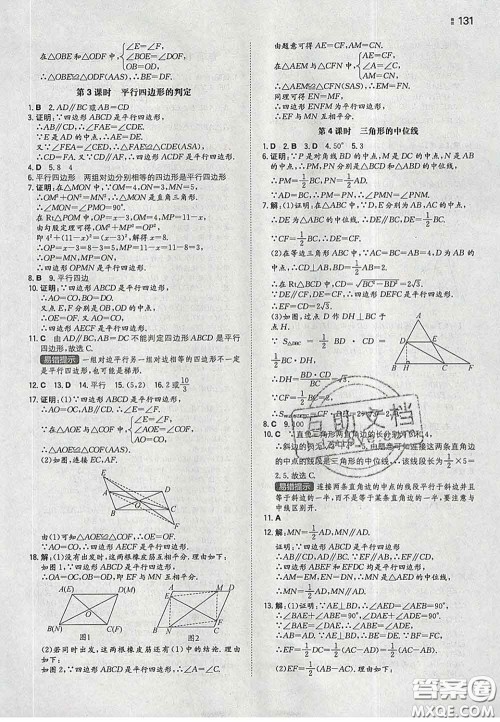 131
在△OBE和△ODF中,{∠E=∠F, ∠BOE=∠DOF, OB=OD,
∴△OBE≌△ODF(AAS),∴BE=DF.
第3课时 平行四边形的判定
1. B 2. AD∥BC或AB=CD
3. 证明:∵四边形ABCD是平行四边形,
∴AB∥CD,∴∠FAE=∠CDE.
∵E是AD的中点,∴AE=DE.
又∵∠FEA=∠CED,∴△FAE≌△CDE(ASA),
∴CD=FA. 又∵CD∥AF,∴四边形ACDF是平行四边形.
4. D 5. 8 4
6. 平行四边形 两组对边分别相等的四边形是平行四边形
7. 证明:∵在△OMN中,OM=4,ON=3,MN=5,
∴OM²+ON²=MN²,∴△MON是直角三角形,
∴∠MON=∠PMO=90°.
在Rt△POM中,OP=x-3,OM=4,MP=11-x,
由勾股定理可得OM²+MP²=OP²,
即4²+(11-x)²=(x-3)²,解得x=8.
∴OP=x-3=8-3=5,MP=11-x=11-8=3,
∴OP=MN,MP=ON,
∴四边形OPMN是平行四边形.
8. B 9. 平行四边
10. 证明:∵四边形ABCD是平行四边形,
∴AO=CO,BO=DO.
又∵点E,F分别是OB,OD的中点,
∴OE=OF. 又∵AO=CO,
∴四边形AECF是平行四边形.
11. C 由AD∥BC,AB=DC不能判定四边形ABCD是平行四边形,故选C.
易错提示 一组对边平行另一组对边相等的四边形不一定是平行四边形,易错选.
12. C 13. D 14. 平行 15. (5,2) 16. 2或10/3
17. (1)证明:∵四边形ABCD是平行四边形,
∴AD∥BC,AO=CO,∴∠E=∠F.
在△AOE与△COF中,{∠E=∠F, ∠AOE=∠COF, AO=CO,
∴△AOE≌△COF(AAS).
(2)如图,连接EC,AF.
由(1)可知△AOE≌△COF,∴OE=OF.
∵AO=CO,∴四边形AECF是平行四边形.
18. 解:(1)没有出发时,这两根橡皮筋互相平分. 理由如下:
如图1,∵四边形ABCD是平行四边形,
∴AC与BD互相平分,
即EF与MN互相平分.
A(E) D(M) O B(N) C(F)
图1
图2
(2)若同时出发,这两根橡皮筋还有(1)中的结论. 理由如下:
如图2,∵四边形ABCD是平行四边形,∴∠A=∠C.
由题意可得CF=AE,AM=CN.
在△AEM与△CFN中,{AE=CF, ∠A=∠C, AM=CN,
∴△AEM≌△CFN(SAS),∴EM=FN.
同理可得EN=MF.
∴四边形ENFM为平行四边形,
∴EF与MN互相平分.
第4课时 三角形的中位线
1. B 2. B 3. D 4. 50° 5. 3
6. 证明:∵P是对角线BD的中点,M是DC的中点,N是AB的中点,∴PN,PM分别是△ABD与△BCD的中位线,
∴PM=1/2BC,PN=1/2AD.
∵AD=BC,∴PM=PN,∴∠PMN=∠PNM.
7. 解:(1)证明:∵在△ABC中,D,E分别为AB,AC的中点,
∴DE为△ABC的中位线,∴DE=1/2BC.
∵CF=1/2BC,∴DE=CF.
(2)在等边三角形ABC中,∵D是AB的中点,AB=2,
∴CD⊥AB,BD=1/2AB=1.
∴在Rt△BCD中,CD=√(BC²-BD²)=√3.
∵DE∥CF,DE=CF,∴四边形DEFC是平行四边形,
∴EF=CD=√3.
(3)如图,过点D作DH⊥BC于点H.
8. B 9. 100
易错提示 连接两条直角边的中点的线段平行于斜边并且等于斜边的一半,不要误认为等于直角边的一半,要与中线区别开.
11. 解:MN=1/2AD,MN∥AD.
证明如下:
∵四边形ABCD是平行四边形,∴AD∥BC,AD=BC.
∴四边形ABEF和EFDC均是平行四边形,
∴M,N分别是AE和DE的中点,
∴MN=1/2AD,MN∥AD.
12. 解:(1)证明:∵AE⊥BD,∴∠AED=∠AEB=90°,
∴∠BAE+∠ABE=90°,∠DAE+∠ADE=90°.
∵∠BAE=∠DAE,∴∠ABE=∠ADE,∴AB=AD.
∵AE⊥BD,∴BE=DE.
∵BF=FC,∴EF=1/2DC=1/2(AC-AD)=1/2(AC-AB).
(2)EF=1/2(AB-AC). 理由如下:
答案圈
MXQE.COM